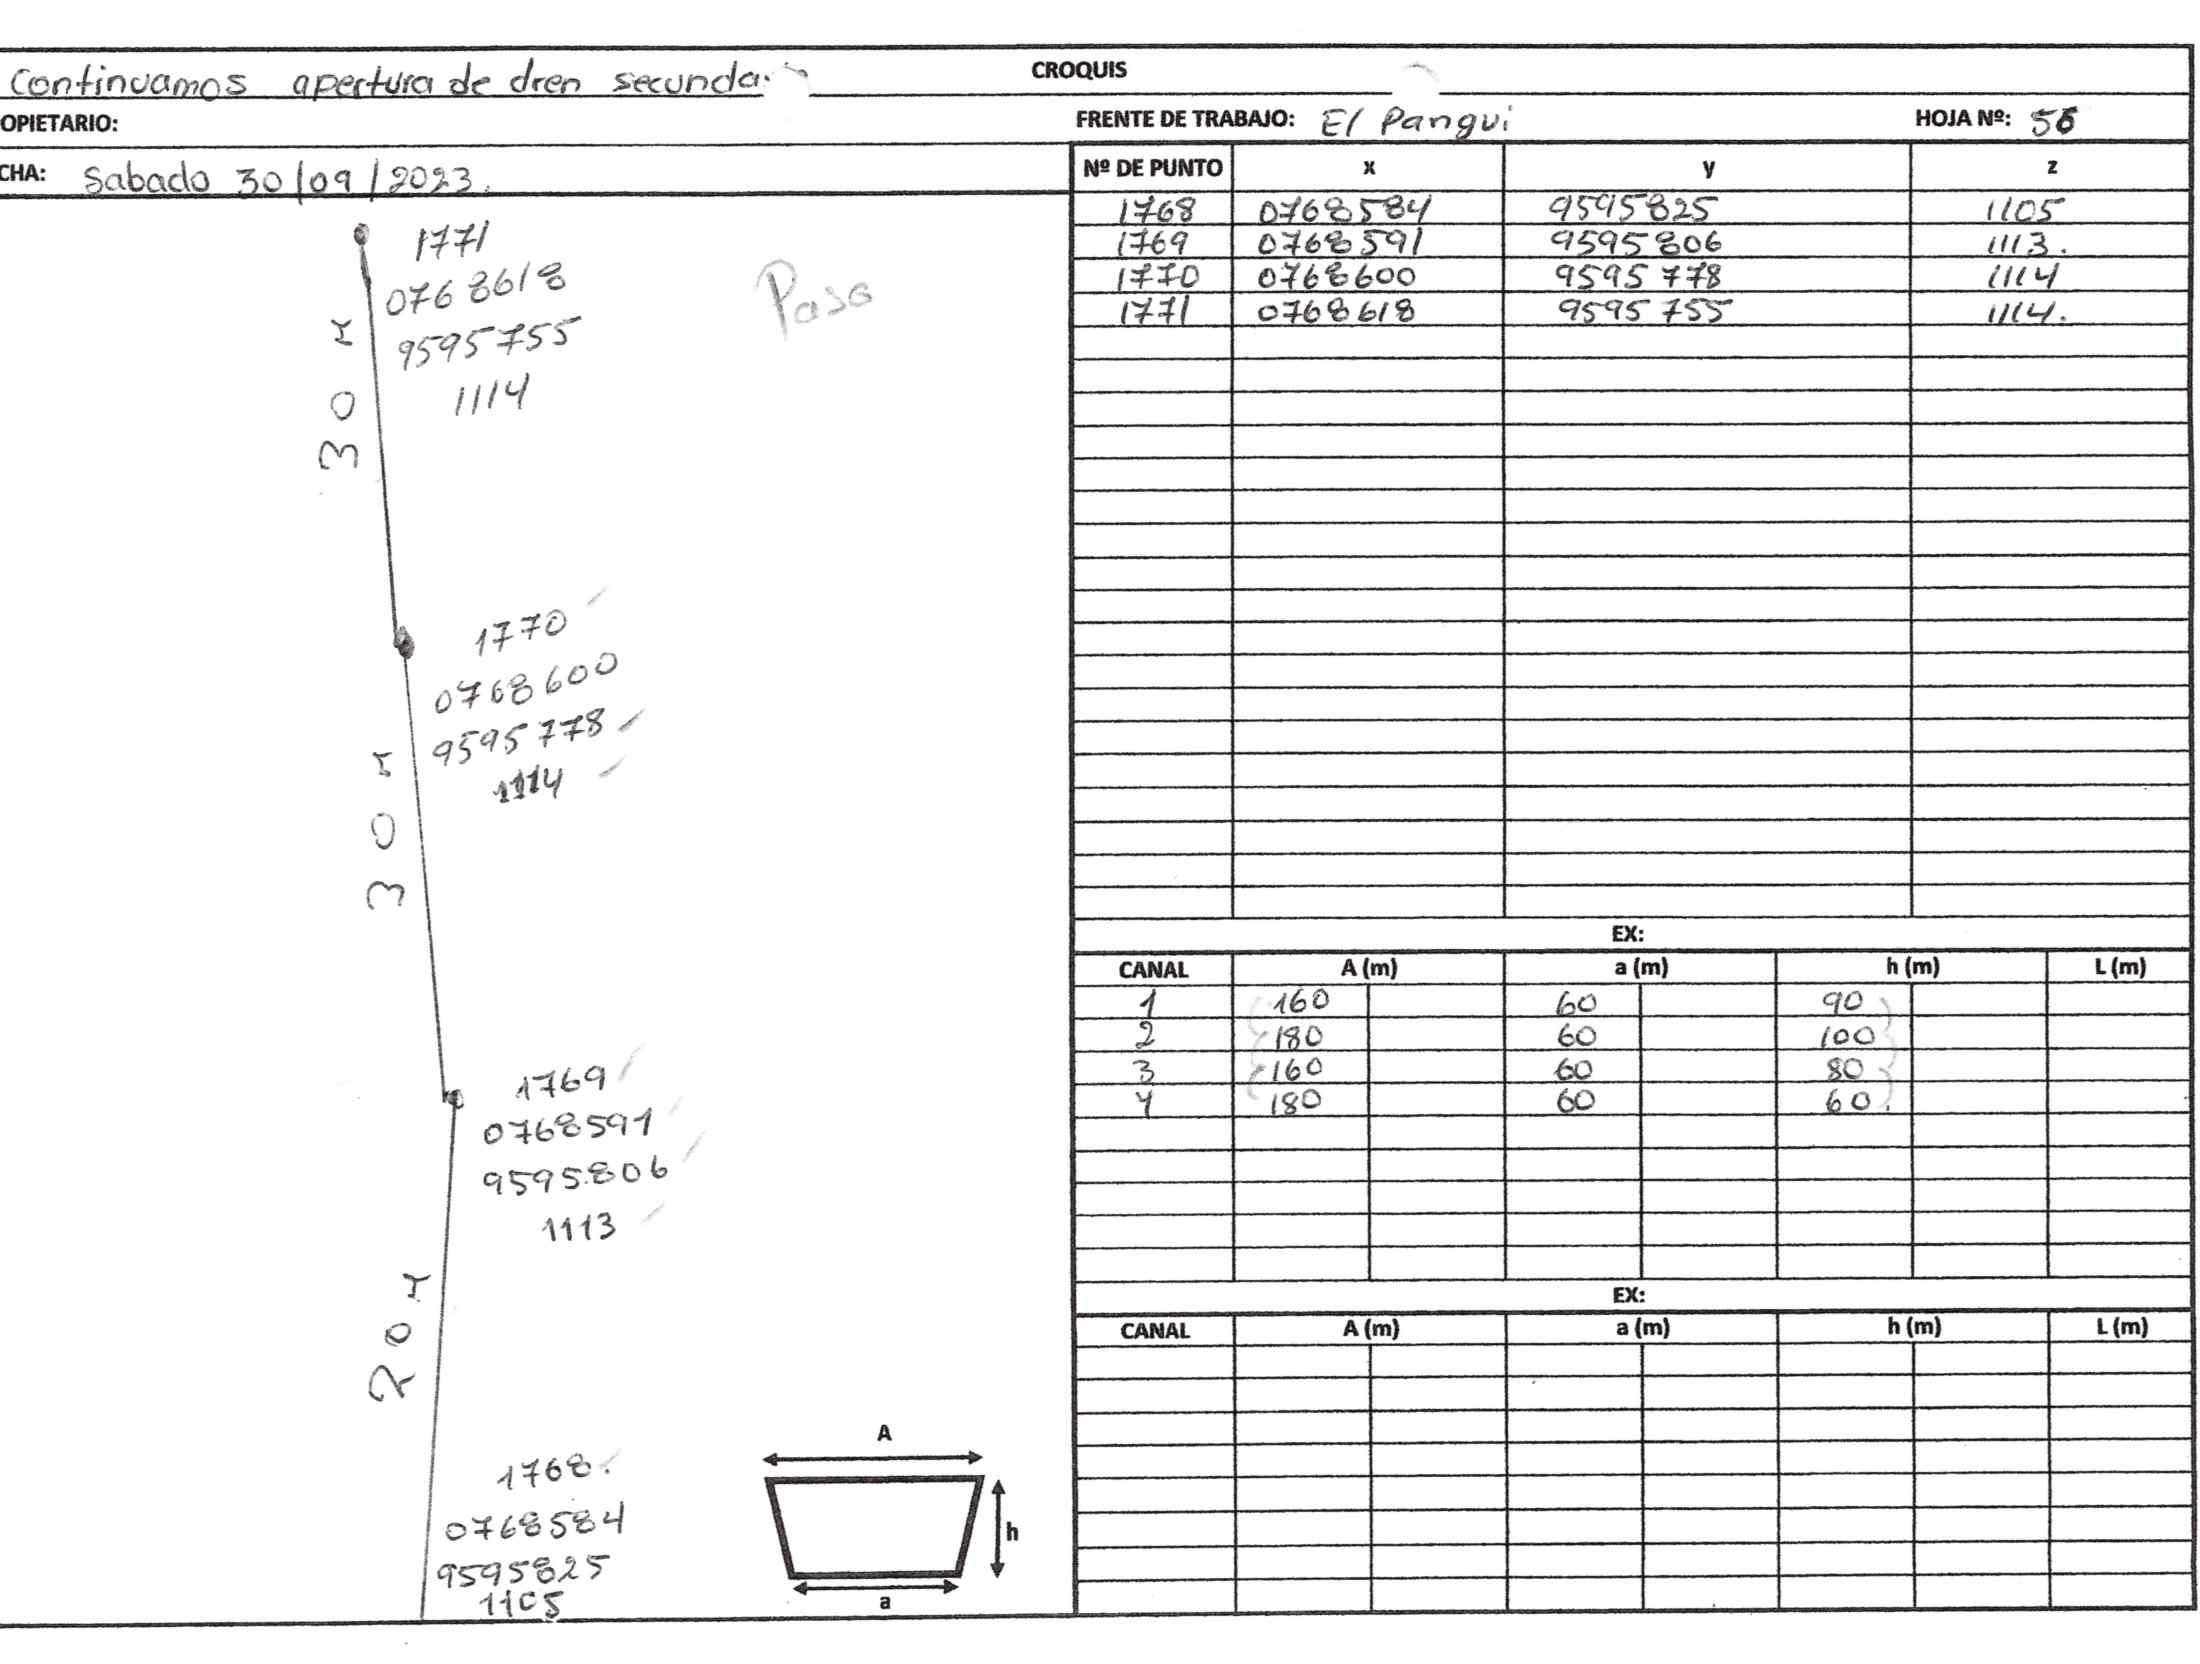 CROQUIS
Continuamos apertura de dren secunda
OPIETARIO:
FRENTE DE TRABAJO: El Pangui
HOJA Nº: 56
CHA: Sabado 30/09/2023.
Nº DE PUNTO x y z
1768 0768584 9595825 1105
1769 0768591 9595806 1113.
1770 0768600 9595778 1114
1771 0768618 9595755 1114.
1771
0768618
9595755
1114
Paso
30 m
1770
0768600
9595778
1114
30 m
1769
0768591
9595806
1113
20 m
1768.
0768584
9595825
1105
A
h
a
EX:
CANAL A (m) a (m) h (m) L (m)
1 160 60 90
2 180 60 100
3 160 60 80
4 180 60 60.
EX:
CANAL A (m) a (m) h (m) L (m)